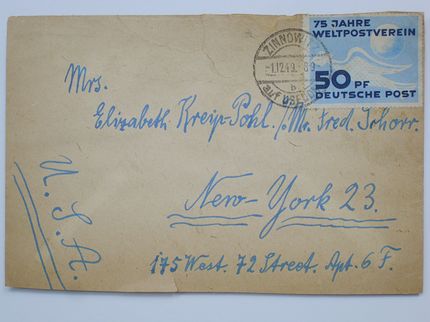 75 JAHRE
WELTPOSTVEREIN
50 PF
DEUTSCHE POST
ZINNOWITZ
-1.12.49.-8-9
b
auf USEDOM
Mrs.
Elizabeth Kreip-Pohl /Mr. Fred. Schorr.
New-York 23.
175 West. 72 Street. Apt. 6 F.
U. S. A.